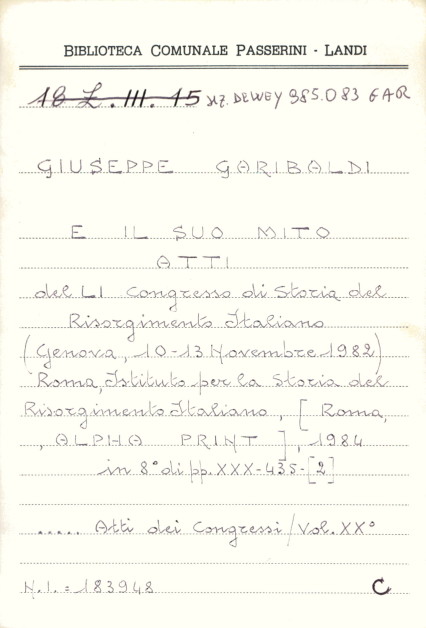 BIBLIOTECA COMUNALE PASSERINI - LANDI
18 Z. III. 15 SEZ. DEWEY 985.083 GAR
GIUSEPPE GARIBALDI
E IL SUO MITO
ATTI
del LI Congresso di Storia del
Risorgimento Italiano
(Genova, 10-13 Novembre 1982)
Roma, Istituto per la Storia del
Risorgimento Italiano, [Roma,
, ALPHA PRINT], 1984
in 8° di pp. XXX-435-[2]
..... Atti dei Congressi/Vol. XX°
N.I. = 183948
C